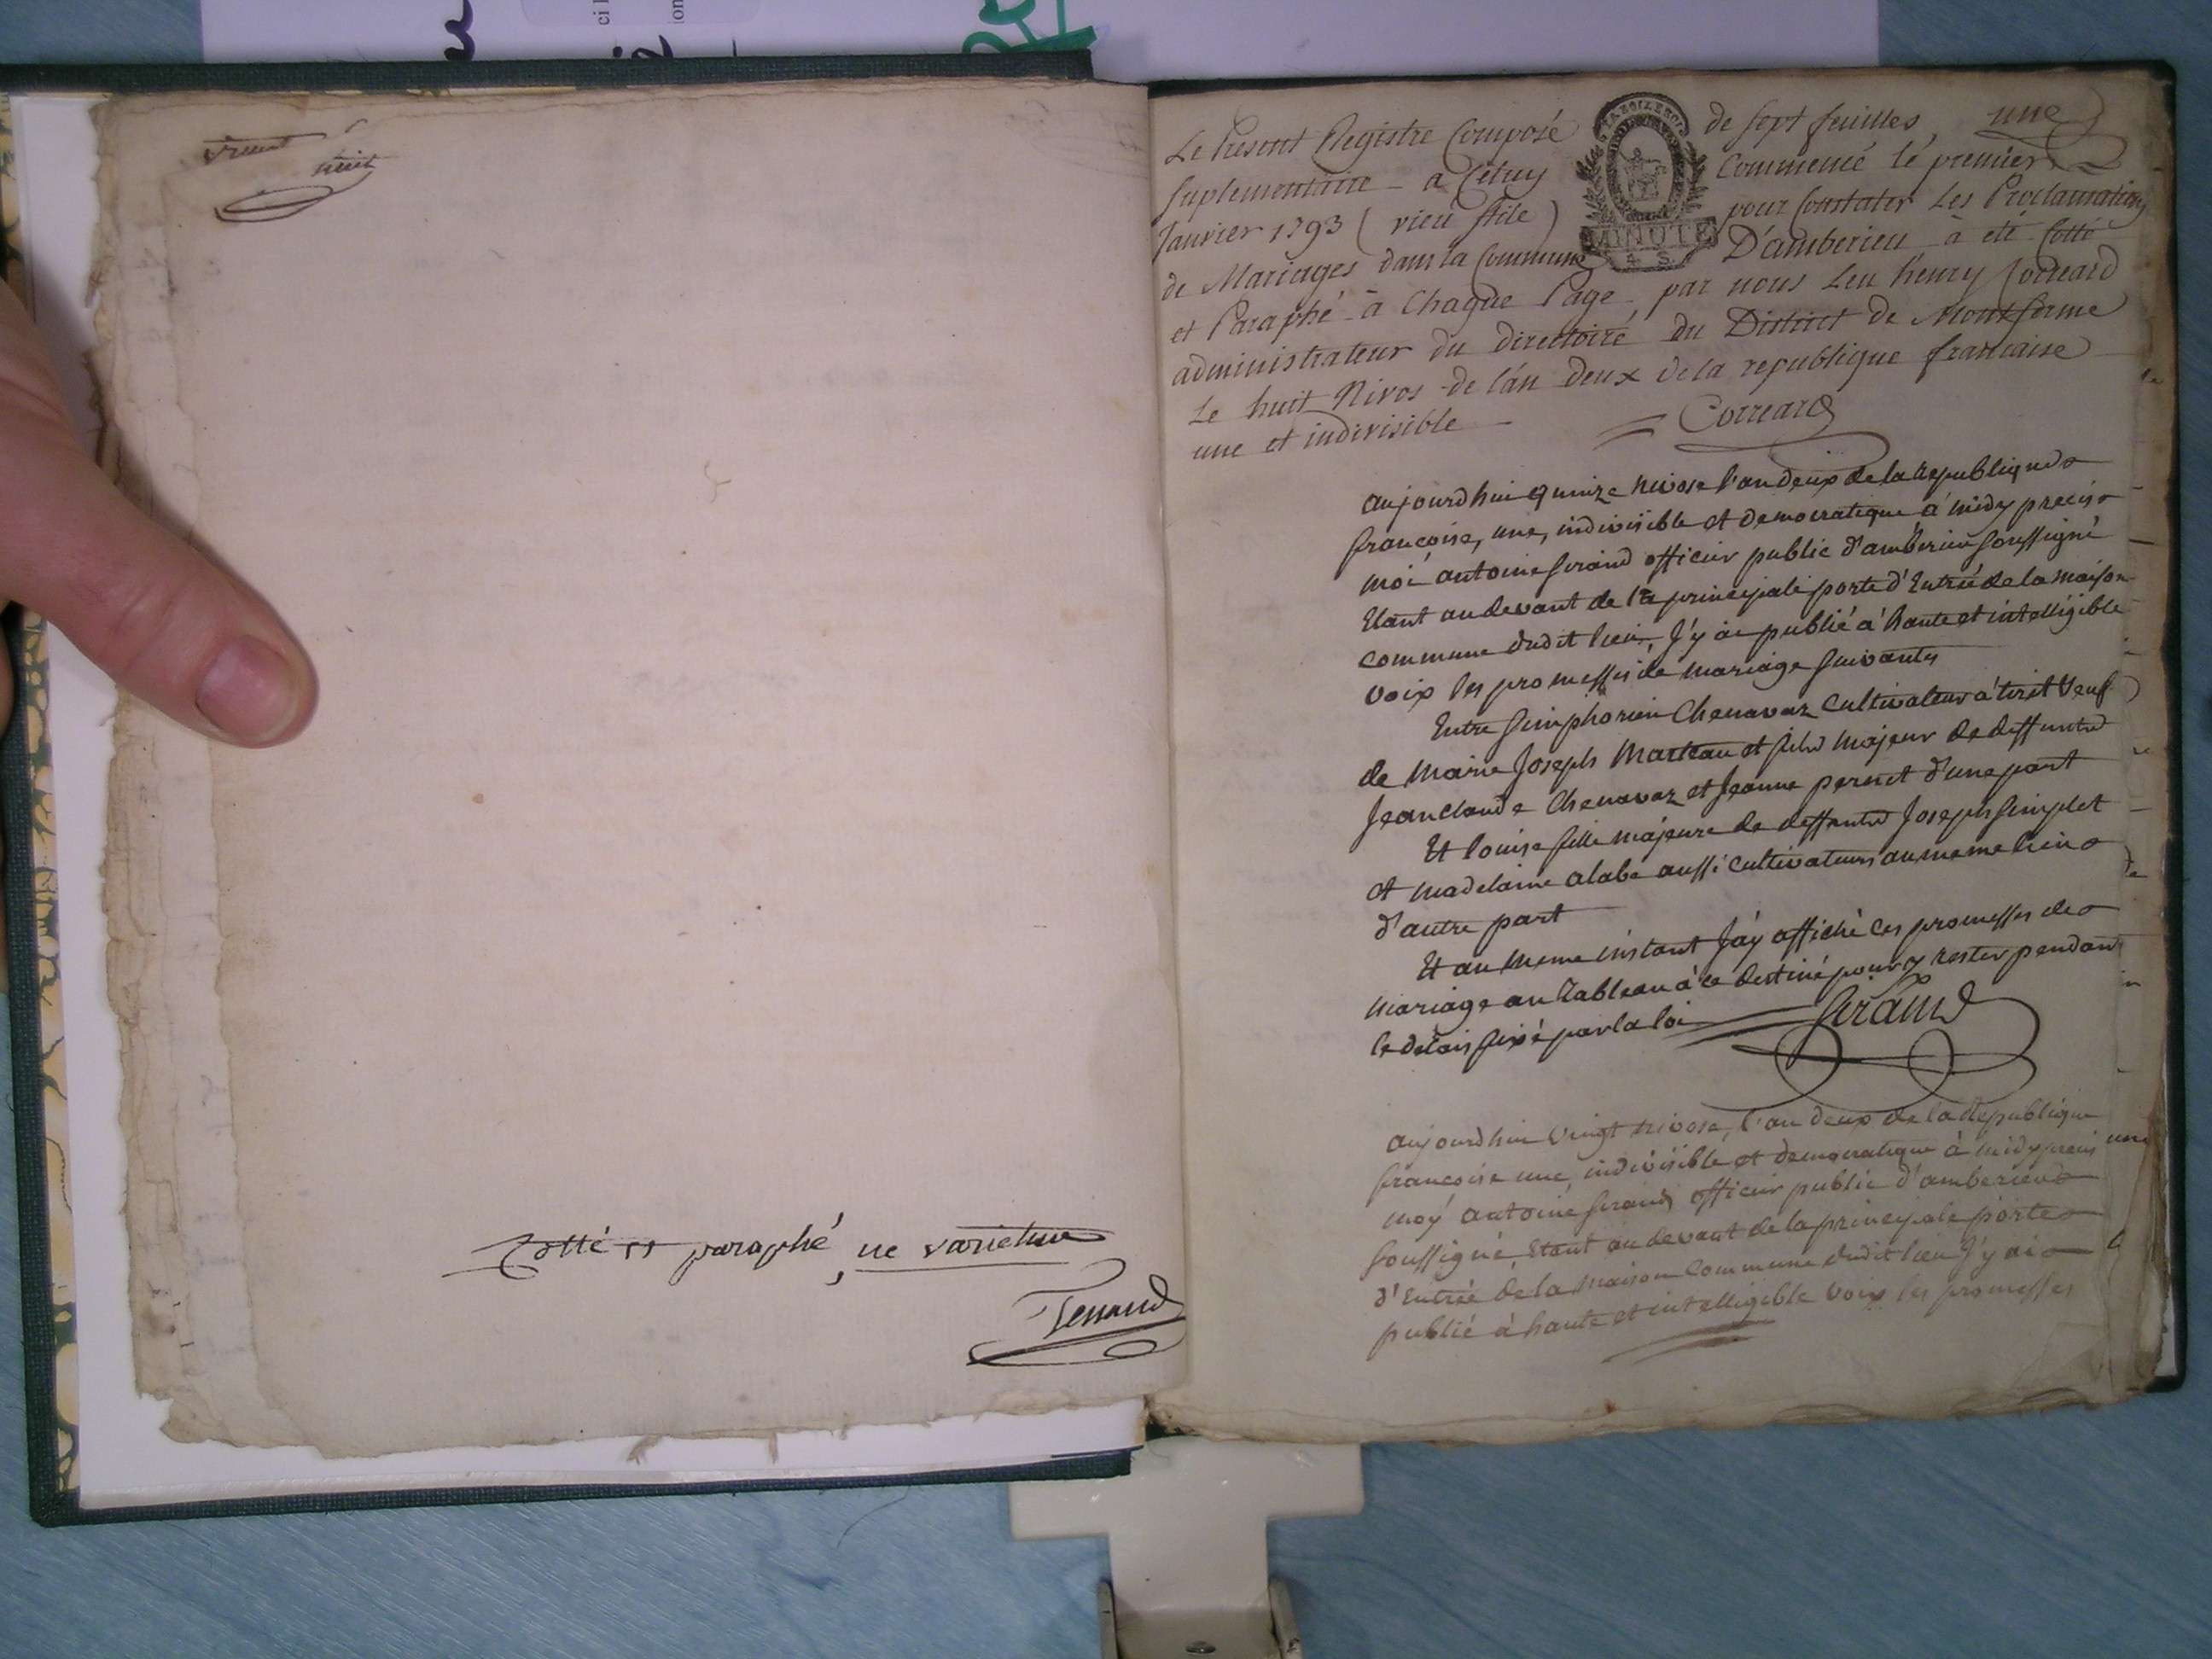 huit
Cotté et paraphé, ne varietur
Le Present Registre Composé de sept feuilles, une
suplementaire a Celuy Commencé lé premier
Janvier 1793 (vieu stile) pour Constater Les Proclamations
de Mariages dans la Commune D'amberieu à été Cotté
MINUTE
4 S
et Paraphé à Chaque Page par nous Leu henry Correard
administrateur du directoire du District de Montferme
Le huit Nivos de l'an deux de la republique francaise
une et indivisible
Correard
aujourd'hui quinze nivose l'an deux de la Republique
françoise, une, indivisible et democratique à midy precis
moi antoine Girand officier public d'amberieu soussigné
Etant au devant de la principale porte d'Entrée de la maison
commune dudit lieu, J'y ai publié à haute et intelligible
voix les promesses de mariage suivantes
Entre Simphorien Chenavaz Cultivateur à tirit veuf
de Marie Joseph Marteau et fils majeur de deffunts
Jean Claude Chenavaz et Jeanne pernet d'une part
Et Louise fille majeure de deffunts Joseph Simplet
et madelaine alabe aussi cultivateurs au meme lieu
d'autre part
Et au meme instant J'ay affiché ces promesses de
mariage au Tableau à ce destiné pour y rester pendant
le delais fixé par la loi
Girand
aujourd'hui vingt nivose, l'an deux de la Republique
françoise une, indivisible et democratique à midy precis
moy antoine Girand officier public d'amberieu
soussigné, Etant au devant de la principale porte
d'Entrée de la maison commune dudit lieu J'y ai
publié à haute et intelligible voix les promesses